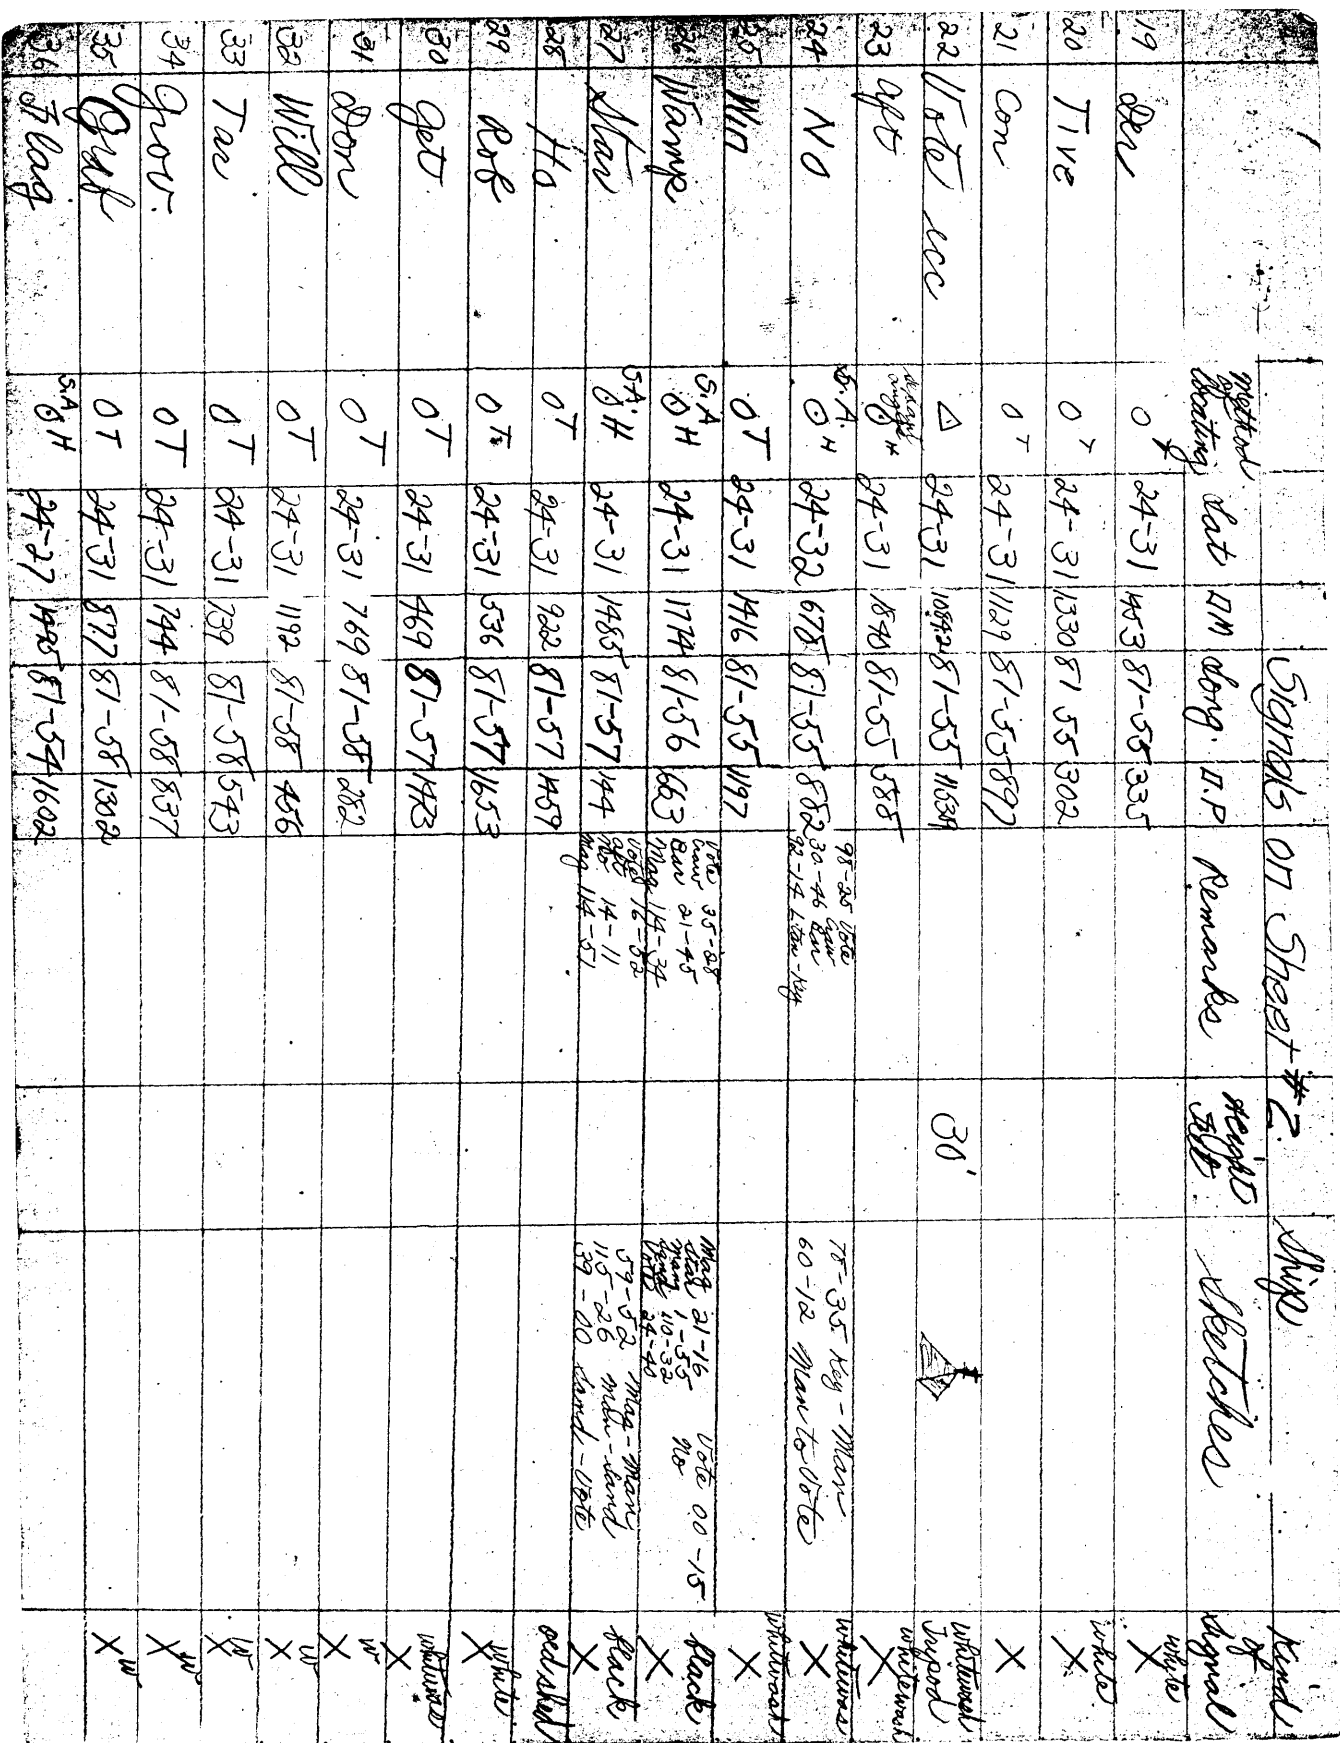 Signals on Sheet #2. Ship
1 Method of locating Lat DM Long. D.P Remarks Height feet Sketches Kind of signal
19 Den O T 24-31 1453 81-55 335 white X
20 Tive O T 24-31 1330 81 55 302 white X
21 Con O T 24-31 1129 81-55 897 X
22 Vote ecc △ 24-31 1084.2 81-55 30' whitewash Tripod
23 Aft ⊙ H 24-31 1840 81-55 585 whitewash X
24 No S.A. ⊙ H 24-32 675 81-55 882 whitewash X
98-25 Vote
30-46
92-14
78-35 Key-Man
60-12 Man to Vote
25 Win O T 24-31 1416 81-55 1197 whitewash X
26 Wamp S.A ⊙ H 24-31 1774 81-56 663 black X
Vote 35-28
21-45
Mag 114-34
Mag 21-16 Vote 00-15
1-55 No
Mam 110-32
Vote 24-40
27 Stan S.A. ⊙ H 24-31 1485 81-57 144 black X
Vote 16-52
Aft
No. 14-11
Mag 114-51
59-52 Mag-Mam
115-26 Mam-Sand
39-00 Sand-Vote
28 Ho O T 24-31 922 81-57 1459 red shed
29 Rob O T 24-31 536 81-57 1653 white X
30 Get O T 24-31 469 81-57 1473 X
31 Don O T 24-31 769 81-58 282 W X
32 Will O T 24-31 1192 81-58 456 W X
33 Tar O T 24-31 739 81-58 543 W X
34 Grov. O T 24-31 744 81-58 837 W X
35 O T 24-31 877 81-58 1302 W X
36 Flag S.A ⊙ H 24-27 1495 81-54 1602